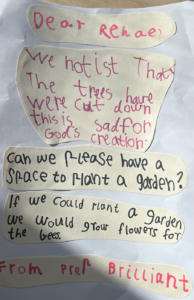 Dear Renae
We notist That
The trees have
were cut down
this is sad for
God's creation.
Can we Please have a
space to Plant a garden?
If we could Plant a garden
we would grow flowers for
the bees.
From Prep Brilliant